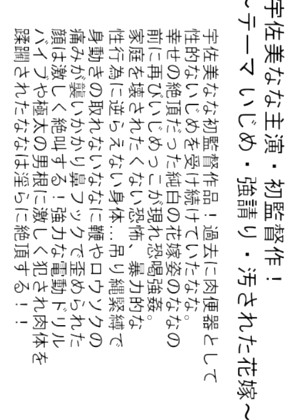 宇佐美なな初主演・初監督作！
～テーマ いじめ・強請り・汚された花嫁～
宇佐美なな初監督作品！過去に肉便器として
性的ないじめを受け続けていたなな。
幸せの絶頂だった純白の花嫁姿のななの
前に再びいじめっこが現れ恐喝強姦。
家庭を壊されたくない恐怖、暴力的な
性行為に逆らえない身体…吊り縄緊縛で
身動きの取れないななに鞭やロウソクの
痛みが襲いかかり鼻フックで歪められた
顔は激しく絶叫する！強力な電動ドリル
バイブや極太の男根に激しく犯され肉体を
蹂躙されたななは淫らに絶頂する！！